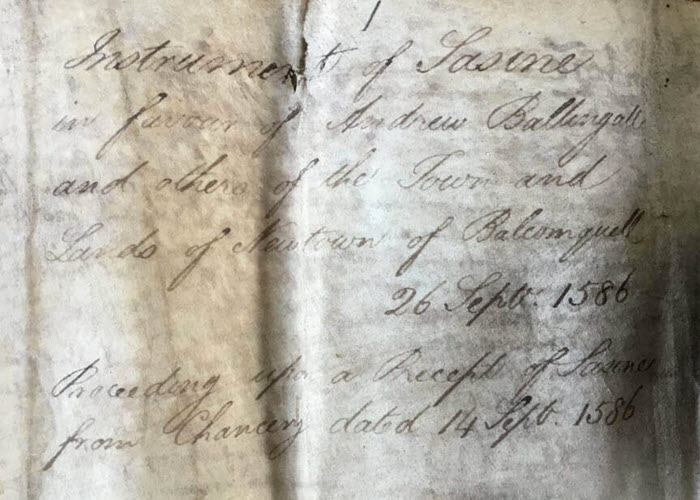 Instrument of Sasine
in favour of Andrew Ballingall
and others of the Town and
Lands of Newtown of Balcomquell
26 Septr. 1586
Proceeding upon a Precept of Sasine
from Chancery dated 14 Sept. 1586